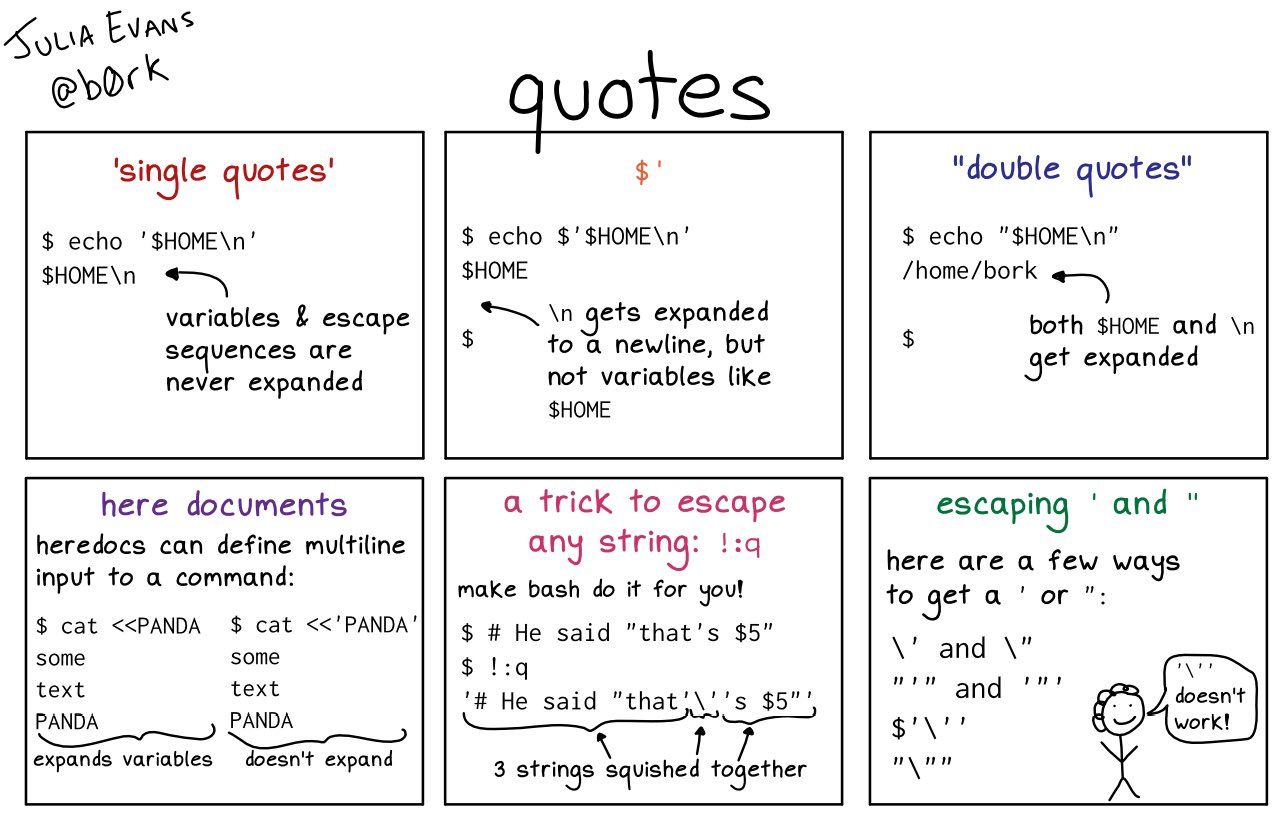 JULIA EVANS
@b0rk
quotes
'single quotes'
$ echo '$HOME\n'
$HOME\n
variables & escape
sequences are
never expanded
$'
$ echo $'$HOME\n'
$HOME
$
\n gets expanded
to a newline, but
not variables like
$HOME
"double quotes"
$ echo "$HOME\n"
/home/bork
$
both $HOME and \n
get expanded
here documents
heredocs can define multiline
input to a command:
$ cat <<PANDA
some
text
PANDA
expands variables
$ cat <<'PANDA'
some
text
PANDA
doesn't expand
a trick to escape
any string: !:q
make bash do it for you!
$ # He said "that's $5"
$ !:q
'# He said "that'\''s $5"'
3 strings squished together
escaping ' and "
here are a few ways
to get a ' or ":
\' and \"
"'" and '"'
$'\''
"\""
'\''
doesn't
work!